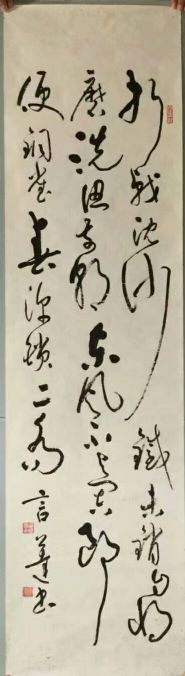 折戟沈沙鐵未銷自將
磨洗認前朝東風不與周郎
便銅雀春深鎖二喬 言書